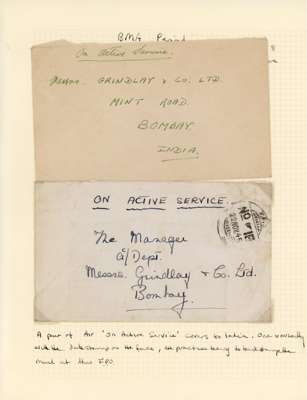 BMA Period
On Active Service.
Messrs. GRINDLAY & Co. LTD.
MINT ROAD.
BOMBAY.
INDIA.
ON ACTIVE SERVICE.
The Manager
A/Dept.
Messrs. Grindlay & Co. Ltd.
Bombay.
A pair of Air 'On Active Service' covers to India. One
with the datestamp on the face, the practice being to
mail at the FPO.